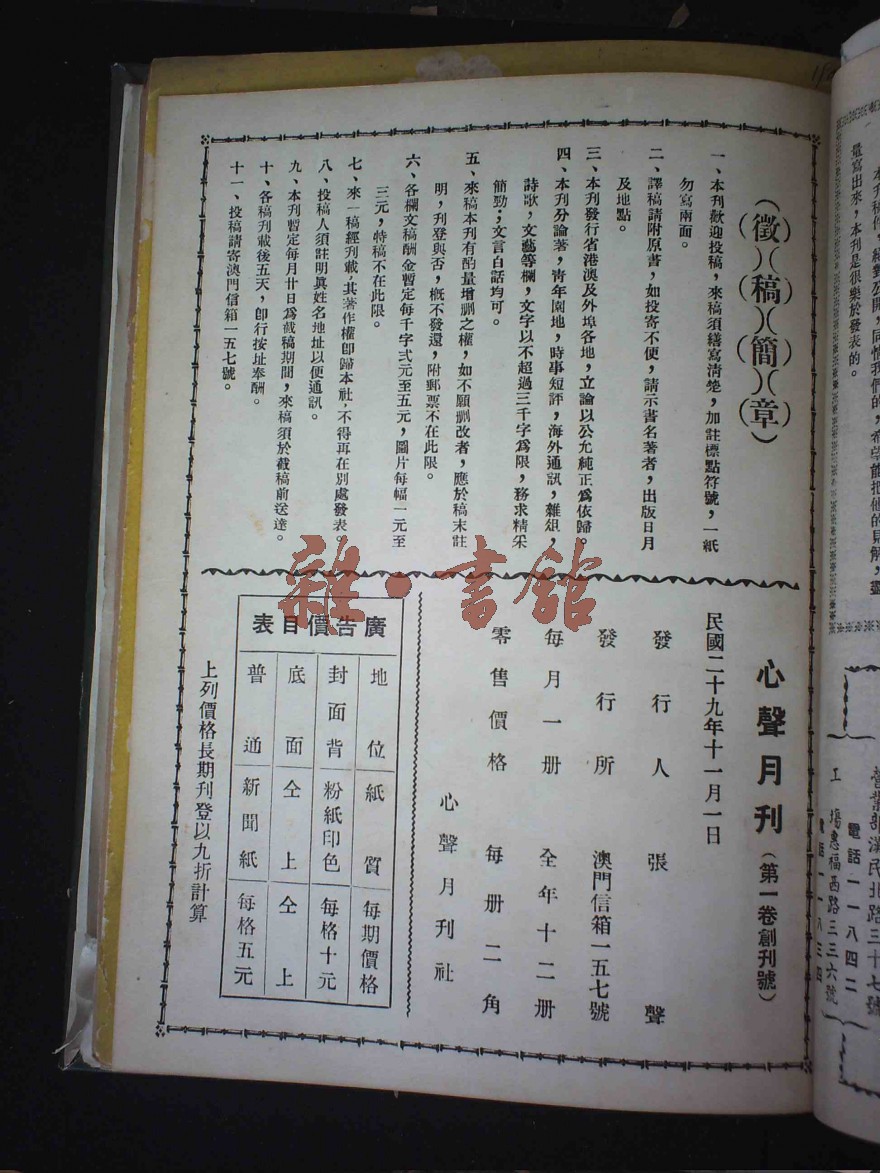 (徵)(稿)(簡)(章)
一、本刊歡迎投稿，來稿須繕寫清楚，加註標點符號，一紙
勿寫兩面。
二、譯稿請附原書，如投寄不便，請示書名著者，出版日月
及地點。
三、本刊發行省港澳及外埠各地，立論以公允純正爲依歸。
四、本刊分論著，青年園地，時事短評，海外通訊，雜俎，
詩歌，文藝等欄，文字以不超過三千字爲限，務求精采
簡勁；文言白話均可。
五、來稿本刊有酌量增删之權，如不願删改者，應於稿末註
明，刋登與否，概不發還，附郵票不在此限。
六、各欄文稿酬金暫定每千字弍元至五元，圖片每幅一元至
三元，特稿不在此限。
七、來一稿經刋載，其著作權卽歸本社，不得再在別處發表
八、投稿人須註明眞姓名地址以便通訊。
九、本刊暫定每月廿日爲截稿期間，來稿須於截稿前送達。
十、各稿刋載後五天，卽行按址奉酬。
十一、投稿請寄澳門信箱一五七號。
心聲月刊（第一卷創刊號）
民國二十九年十一月一日
發行人 張聲
發行所 澳門信箱一五七號
每月一册 全年十二册
零售價格 每册二角
心聲月刊社
廣告價目表
地位 紙質 每期價格
封面背 粉紙印色 每格十元
底面 仝上 仝上
普通 新聞紙 每格五元
上列價格長期刊登以九折計算
雜·書館
量寫出來，本刊是很樂於發表的。
電話一一八四二
工場惠福西路三三六號